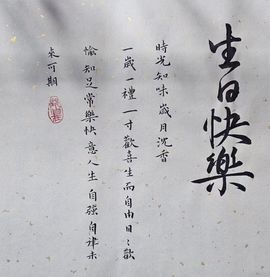 生日快樂
時光知味歲月沉香
一歲一禮一寸歡喜生而自由日〻歡
愉知足常樂快意人生自強自律未
來可期